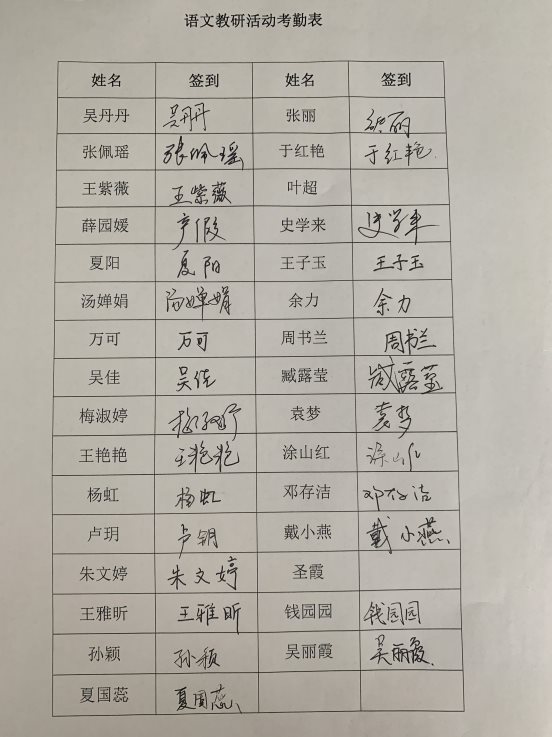 语文教研活动考勤表
姓名 签到 姓名 签到
吴丹丹 吴丹丹 张丽 张丽
张佩瑶 张佩瑶 于红艳 于红艳
王紫薇 王紫薇 叶超
薛园媛 产假 史学来 史学来
夏阳 夏阳 王子玉 王子玉
汤婵娟 汤婵娟 余力 余力
万可 万可 周书兰 周书兰
吴佳 吴佳 臧露莹 臧露莹
梅淑婷 梅淑婷 袁梦 袁梦
王艳艳 王艳艳 涂山红 涂山红
杨虹 杨虹 邓存洁 邓存洁
卢玥 卢玥 戴小燕 戴小燕
朱文婷 朱文婷 圣霞
王雅昕 王雅昕 钱园园 钱园园
孙颖 孙颖 吴丽霞 吴丽霞
夏国蕊 夏国蕊